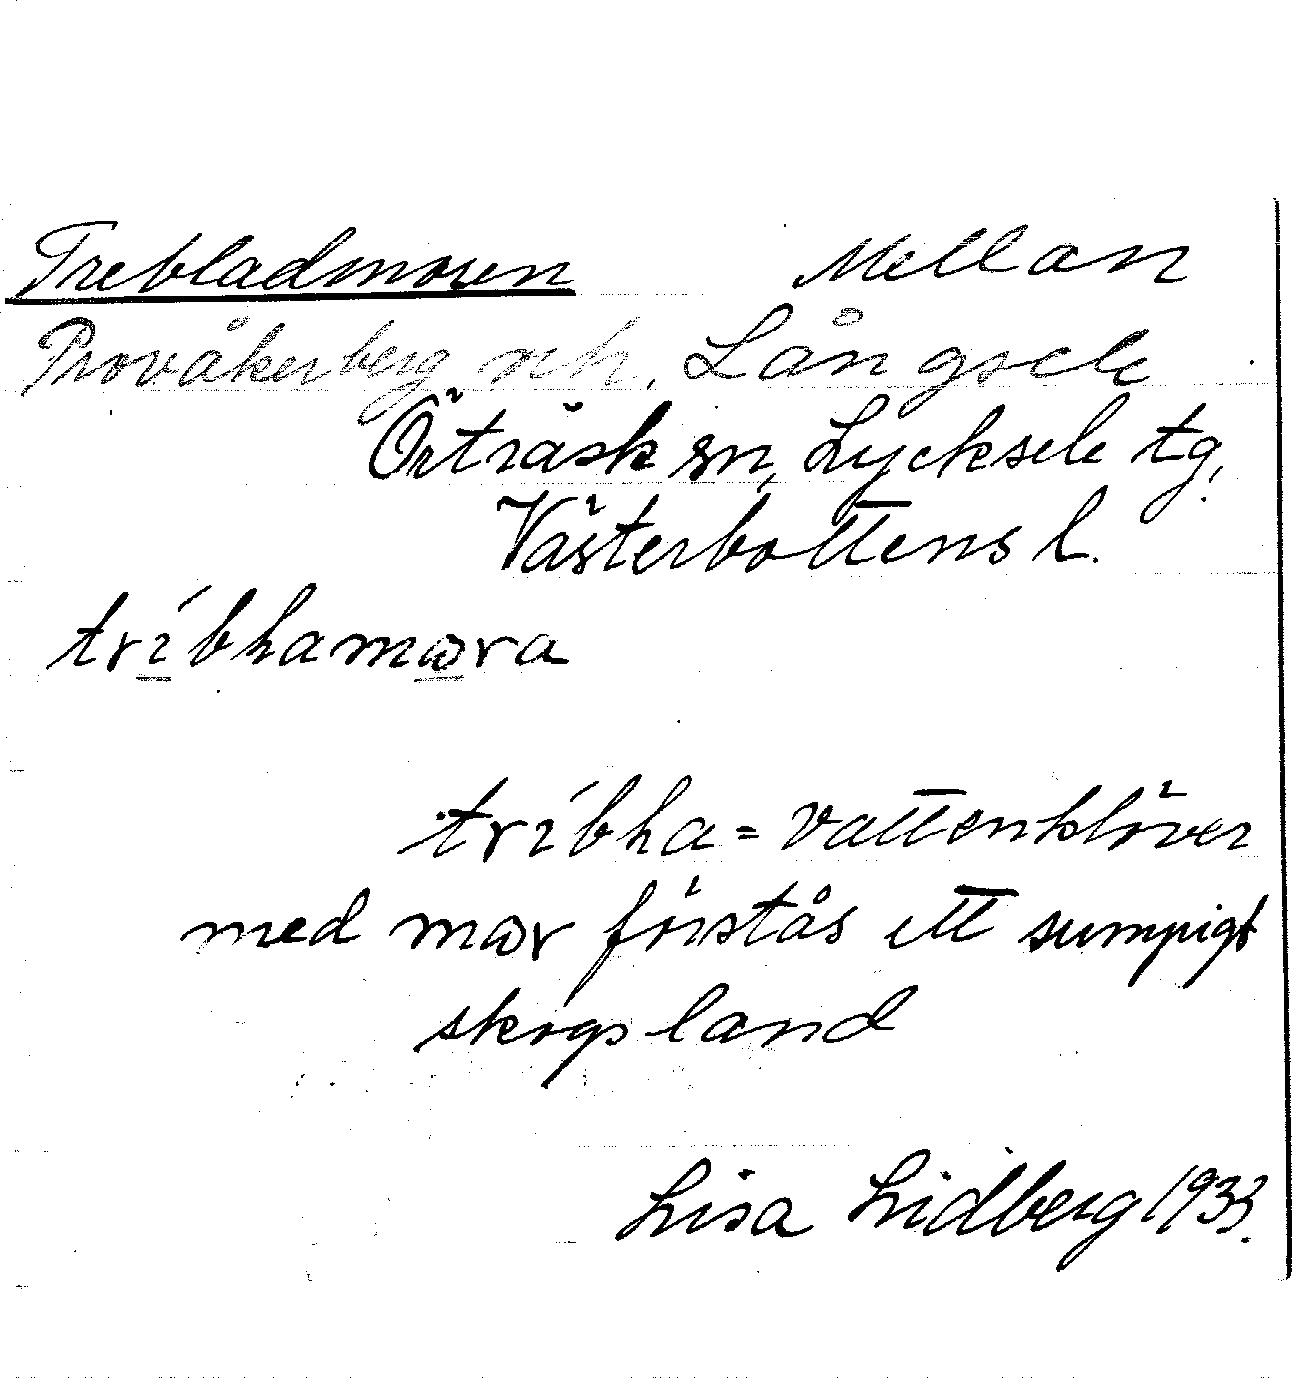 Trebladmoren Mellan
Provåkerberg och Långsele
Örträsk sn, Lycksele tg,
Västerbottens l.
tríbhamωra
tríbha = vattenklöver
med mωr förstås ett sumpigt
skogsland
Lisa Lidberg 1933.